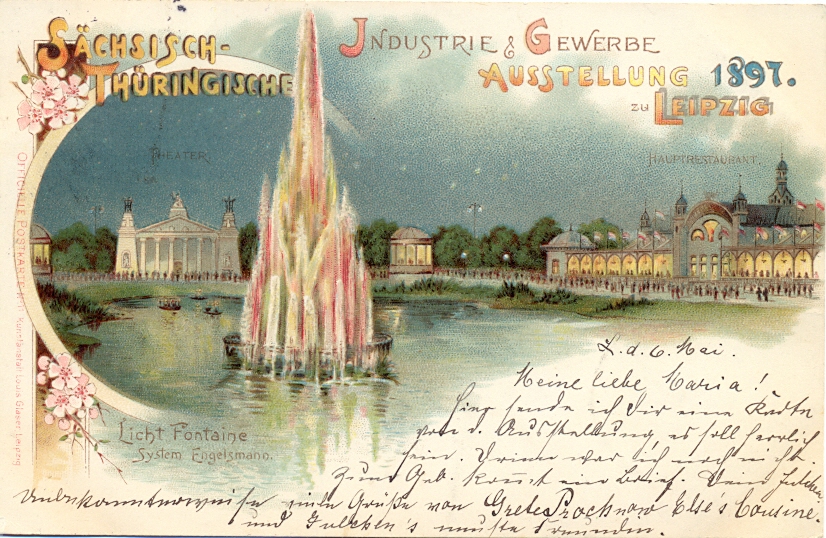 SÄCHSISCH-
THÜRINGISCHE
INDUSTRIE & GEWERBE
AUSSTELLUNG 1897.
ZU LEIPZIG
THEATER
HAUPTRESTAURANT.
OFFICIELLE POSTKARTE No. Kunstanstalt Louis Glaser, Leipzig
Licht Fontaine
System Engelsmann.
L. d. 6. Mai.
Meine liebe Maria!
Hier sende ich Dir eine Karte
von d. Ausstellung, es soll herrlich
sein. Drinn war ich noch nicht.
Zum Geb. kommt ein Brief. Dein Julchen
Unbekannterweise viele Grüße von Grete Prochnow Else's Cousine.
und Julchen's neuste Freundin.